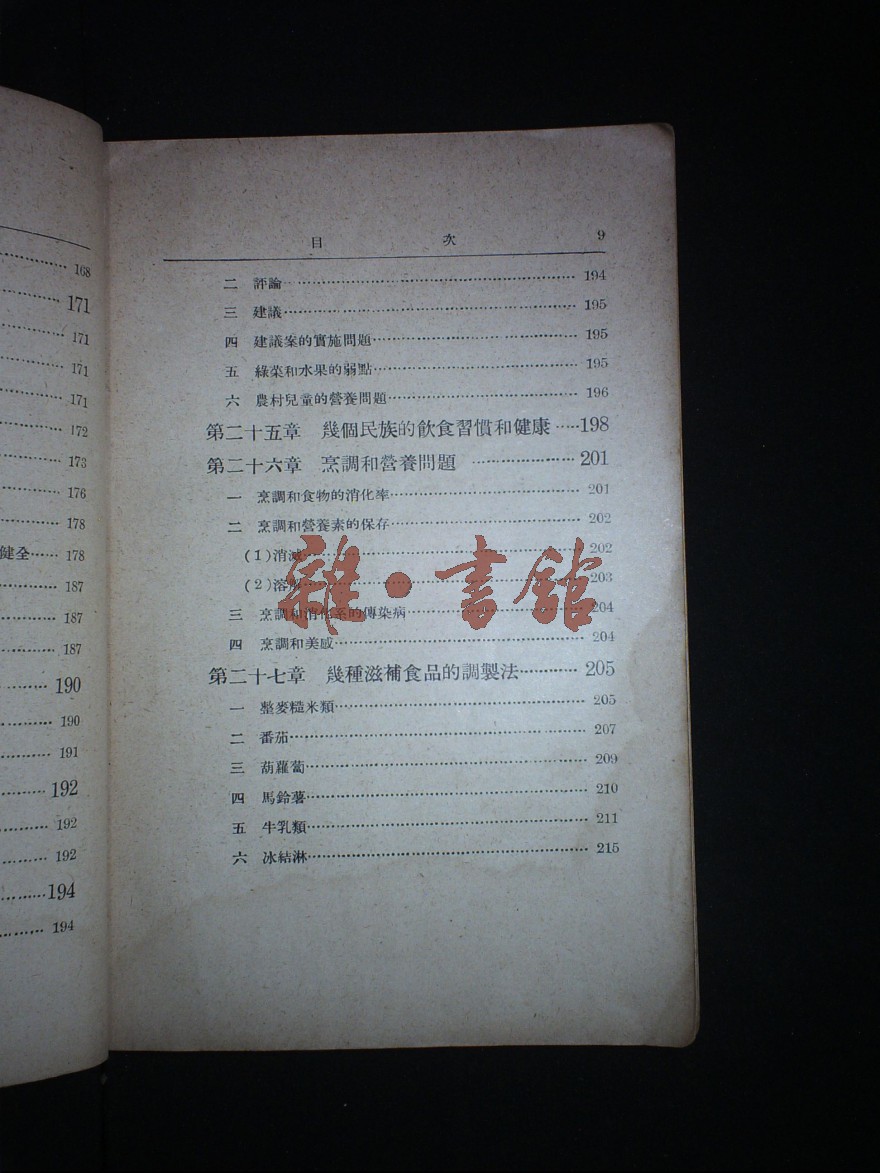 168
171
171
171
171
172
173
176
178
健全…… 178
187
187
187
190
190
191
192
192
192
194
194
目 次 9
二 評論 194
三 建議 195
四 建議案的實施問題 195
五 綠菜和水果的弱點 195
六 農村兒童的營養問題 196
第二十五章 幾個民族的飲食習慣和健康 198
第二十六章 烹調和營養問題 201
一 烹調和食物的消化率 201
二 烹調和營養素的保存 202
(1)消滅 202
(2)溶解 203
三 烹調和消化系的傳染病 204
四 烹調和美感 204
第二十七章 幾種滋補食品的調製法 205
一 整麥糙米類 205
二 番茄 207
三 葫蘿蔔 209
四 馬鈴薯 210
五 牛乳類 211
六 冰結淋 215
雜·書館